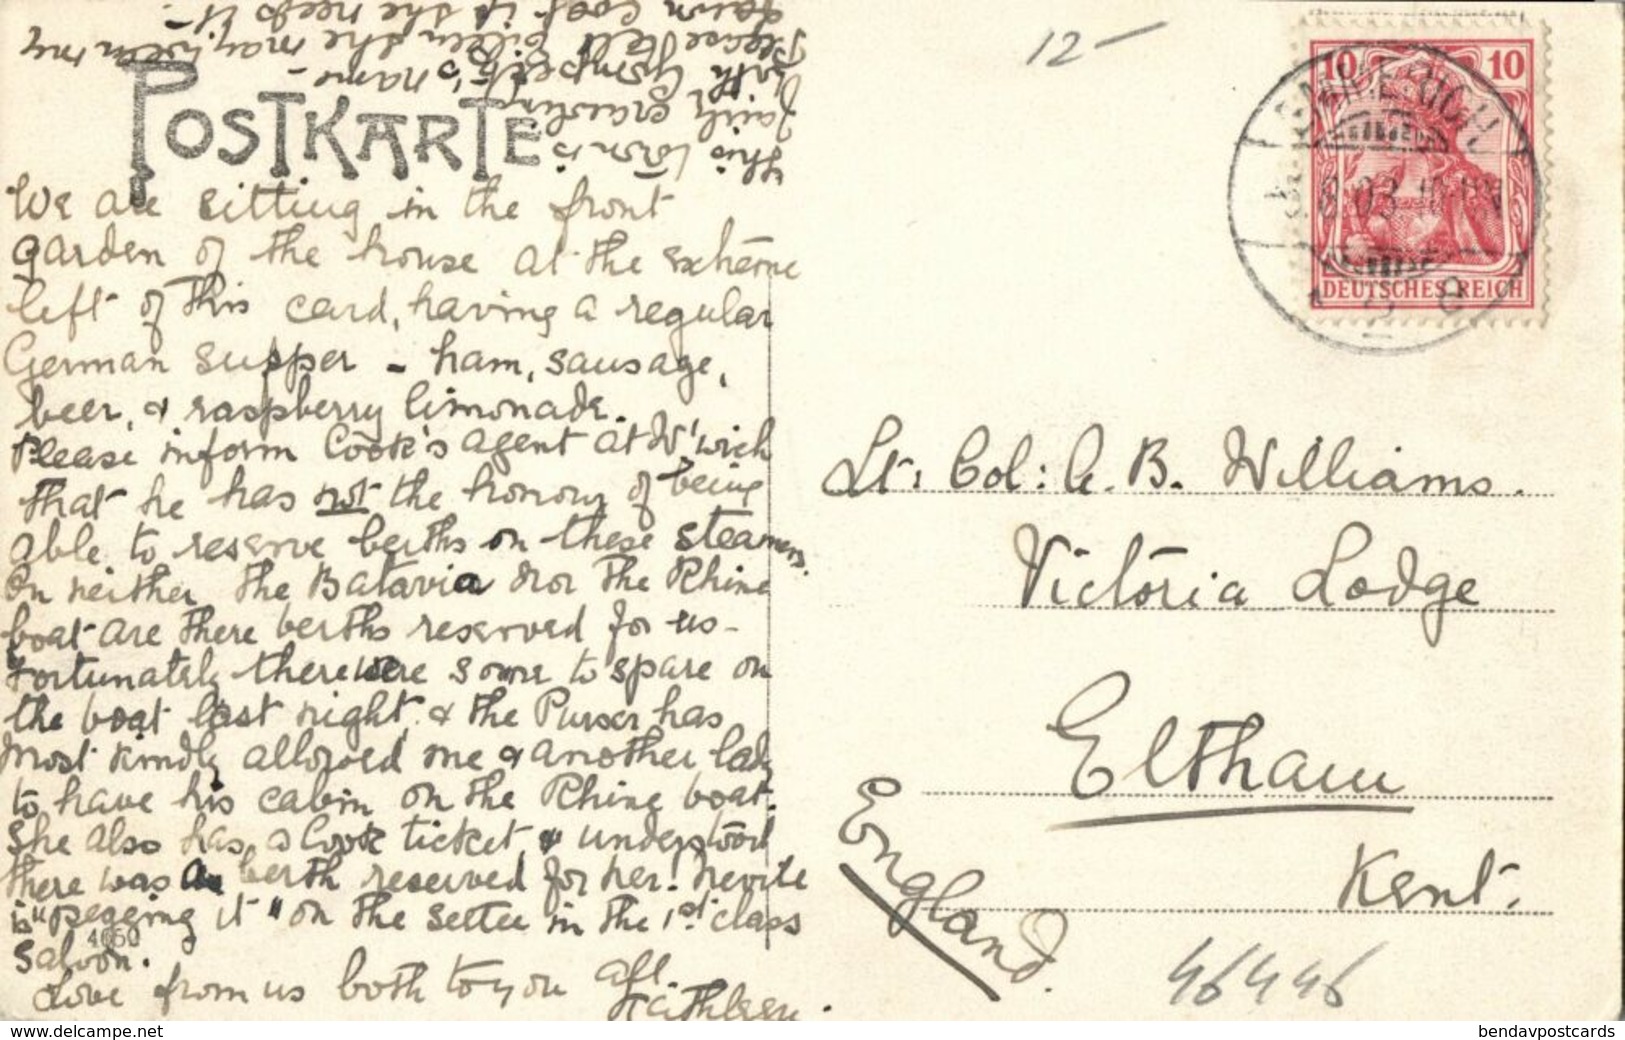 POSTKARTE
We are sitting in the front
garden of the house at the extreme
left of this card, having a regular
German supper - ham, sausage,
beer, & raspberry limonade.
Please inform Cook's agent at W'wich
that he has not the honour of being
able to reserve berths on these steamers.
On neither the Batavia nor the Rhine
boat are there berths reserved for us -
Fortunately there were some to spare on
the boat last night, & the Purser has
most kindly allowed me & another lady
to have his cabin on the Rhine boat.
She also has a Cook ticket, & understood
there was a berth reserved for her! Nevile
is "pegging it" on the settee in the 1st class
Saloon.
4060
Love from us both to you all.
Kathleen.
This town is
fairly crawling
with
Please tell Eileen she may wear my
down coat if she needs it -
12 -
10 10
DEUTSCHES REICH
EMMERICH
8.03
Lt: Col: A. B. Williams.
Victoria Lodge
Eltham
Kent.
England.
46446
bendavpostcards